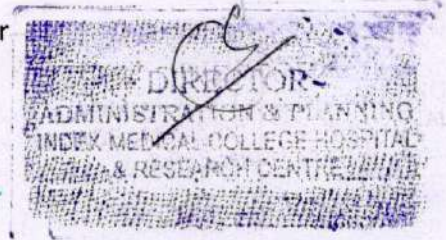 r
DIRECTOR
ADMINISTRATION & PLANNING
INDEX MEDICAL COLLEGE HOSPITAL
& RESEARCH CENTRE